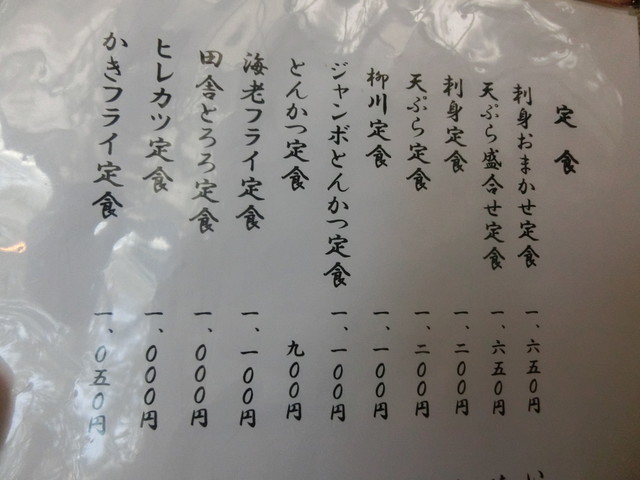 定食
刺身おまかせ定食 一、六五0円
天ぷら盛合せ定食 一、六五0円
刺身定食 一、二00円
天ぷら定食 一、二00円
柳川定食 一、一00円
ジャンボとんかつ定食 一、一00円
とんかつ定食 九00円
海老フライ定食 一、一00円
田舎とろろ定食 一、000円
ヒレカツ定食 一、000円
かきフライ定食 一、0五0円